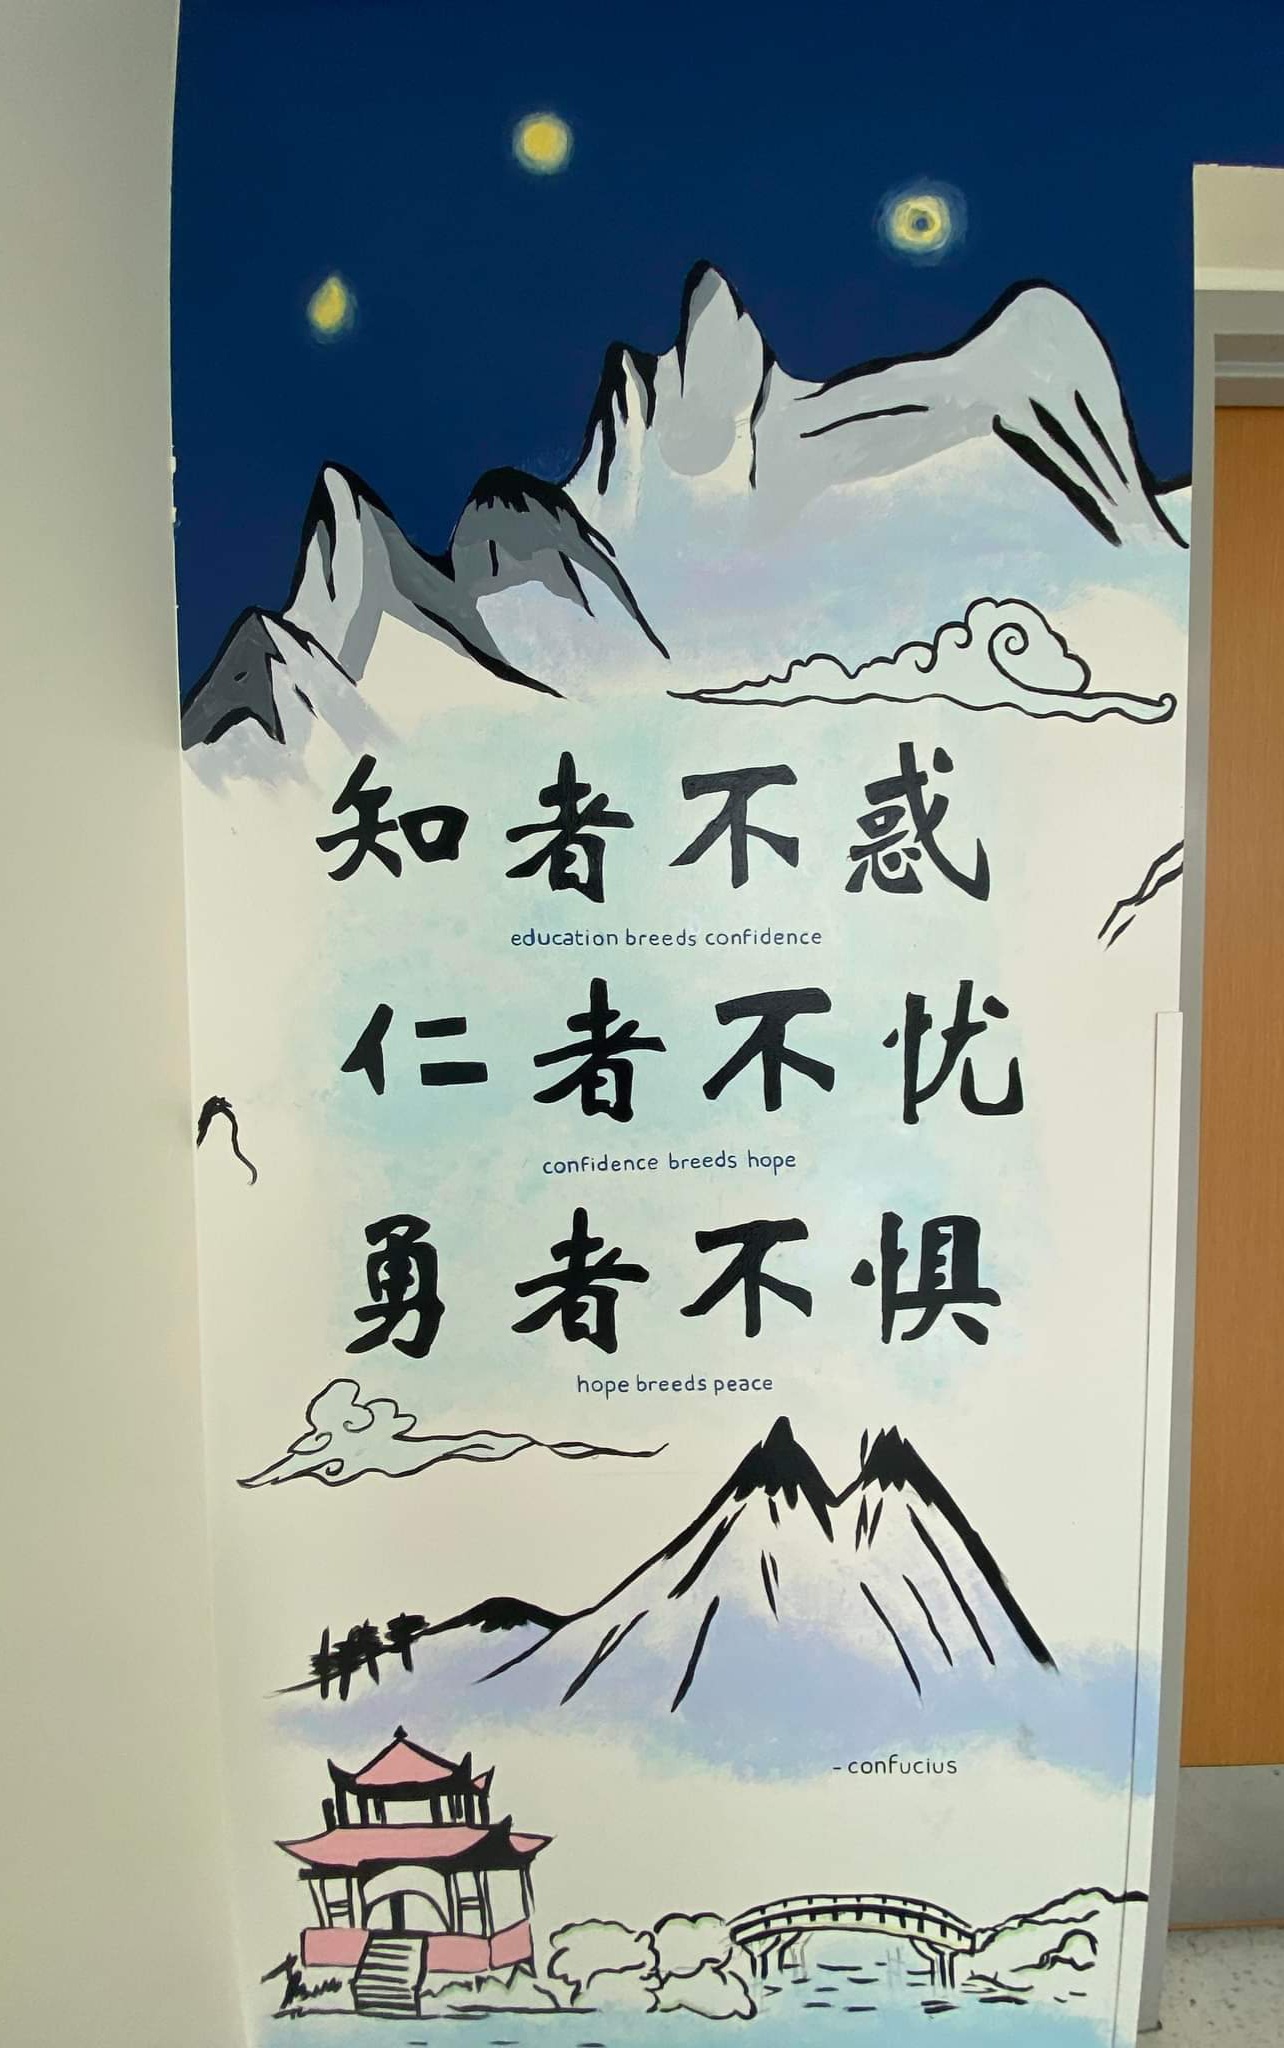 知者不惑
education breeds confidence
仁者不忧
confidence breeds hope
勇者不惧
hope breeds peace
- confucius